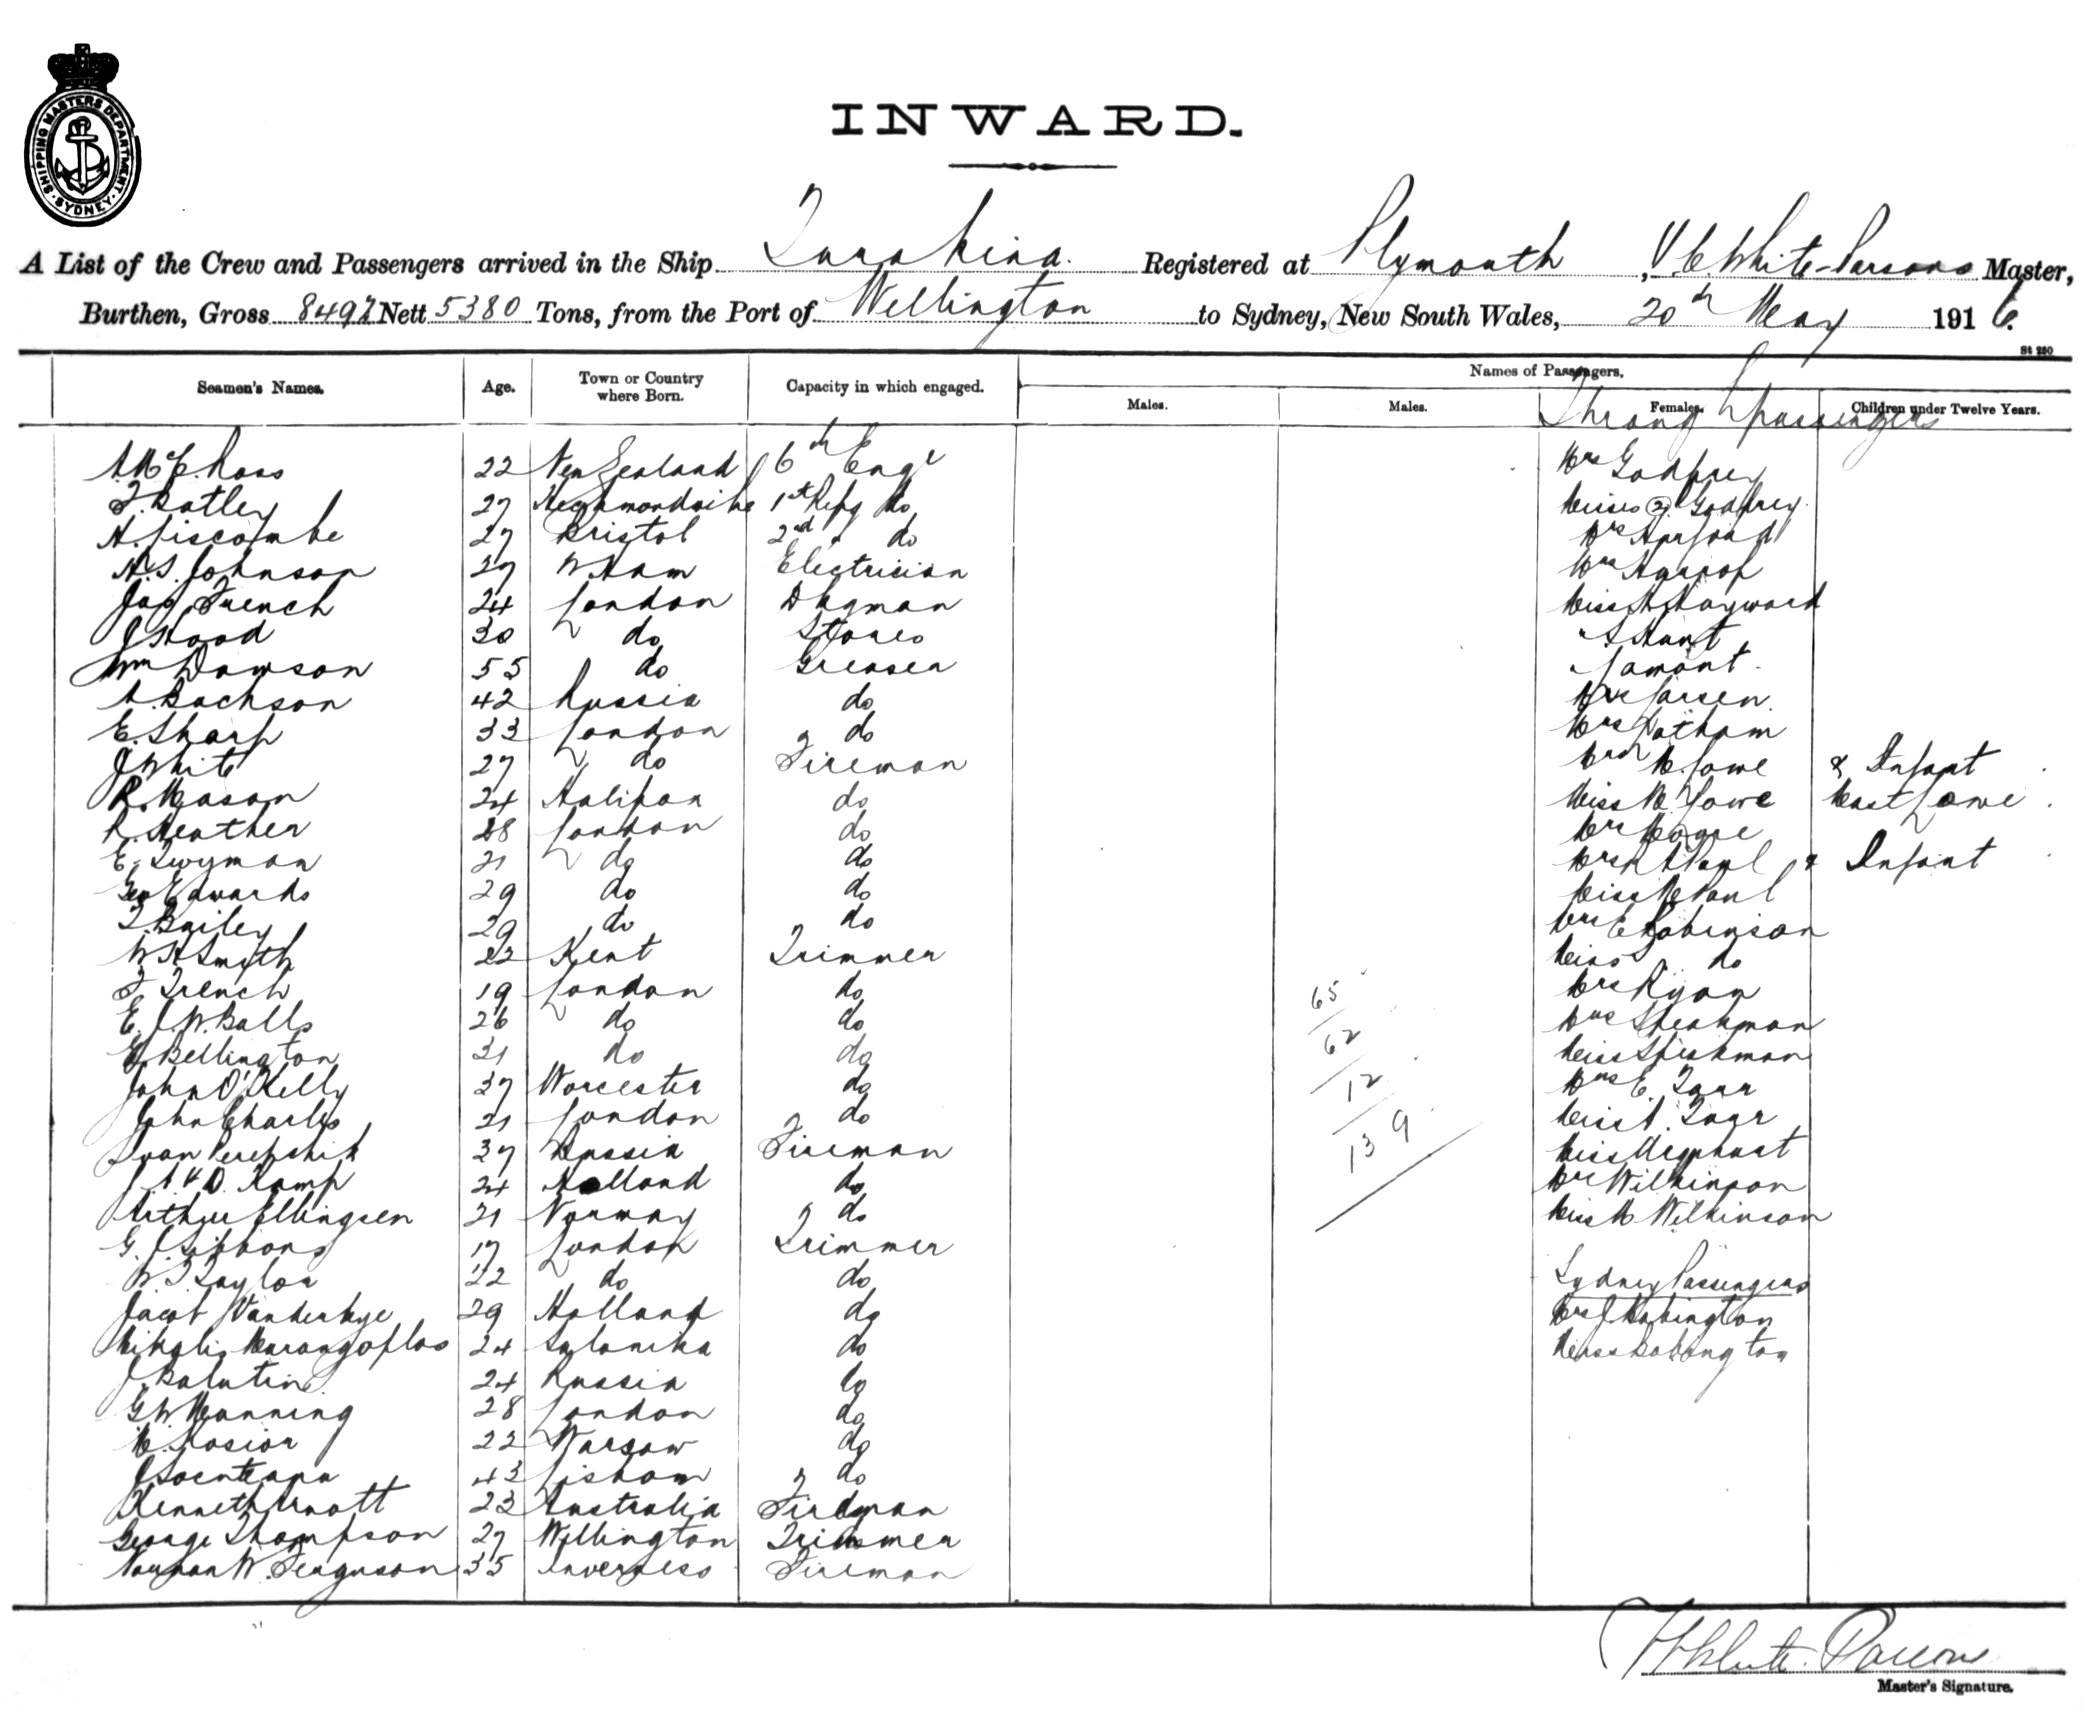 SHIPPING MASTERS DEPARTMENT
SYDNEY
INWARD.
A List of the Crew and Passengers arrived in the Ship Turakina. Registered at Plymouth, V C. White-Parsons Master,
Burthen, Gross 8492 Nett 5380 Tons, from the Port of Wellington to Sydney, New South Wales, 20th May 1916.
St 250
Seamen's Names. Age. Town or Country where Born. Capacity in which engaged. Names of Passengers.
Males. Males. Females. Children under Twelve Years.
Passengers
A. McC. Ross 22 New Zealand 6th Engr Mrs Godfrey
T. Batley 27 Heckmondwike 1st Refg do Misses (2) Godfrey
A. Liscombe 27 Bristol 2nd " do Mrs
H. S. Johnson 27 W Ham Electrician Mrs
Jas French 24 London Dkyman Miss A Hayward
J Hood 30 do Stores " S Hunt
Wm Dawson 55 do Greaser " Lamont
A. Backson 42 Russia do Mrs Larsen
E. Sharp 33 London do Mrs Latham
J White 27 do Fireman Mrs M. Lowe & Infant
R. Mason 24 Halifax do Miss M Lowe Mast Lowe
R. Heather 28 London do Mrs
E. Twyman 21 do do Mrs R A Paul & Infant
Geo Edwards 29 do do Miss M Paul
T. Bailey 29 do do Mrs E Robinson
W H Smyth 22 Kent Trimmer Miss do
F French 19 London do Mrs Ryan
E. J. W. Balls 26 do do Mrs Speakman
E. Bellington 31 do do Miss Speakman
John O'Kelly 37 Worcester do Mrs E. Tarr
John Charles 21 London do Miss A. Tarr
Ivan Perepshik 37 Russia Fireman Miss
J. A V D. Kamp 24 Holland do Mrs Wilkinson
Arthur Ellingsen 21 Norway do Miss M Wilkinson
G. J. Gibbons 17 London Trimmer
W. T Taylor 22 do do Sydney Passengers
Jacob Vanderhye 29 Holland do Mrs J Babington
Mikali Marangoplas 24 Salonika do Miss Babington
J. Balutin 24 Russia do
G W Manning 28 London do
M. Kosior 22 Warsaw do
J 43 Lisbon do
Kenneth Arnott 23 Australia Fireman
George Thompson 27 Wellington Trimmer
Norman W. Ferguson 35 Inverness Fireman
65
62
12
139
Master's Signature.